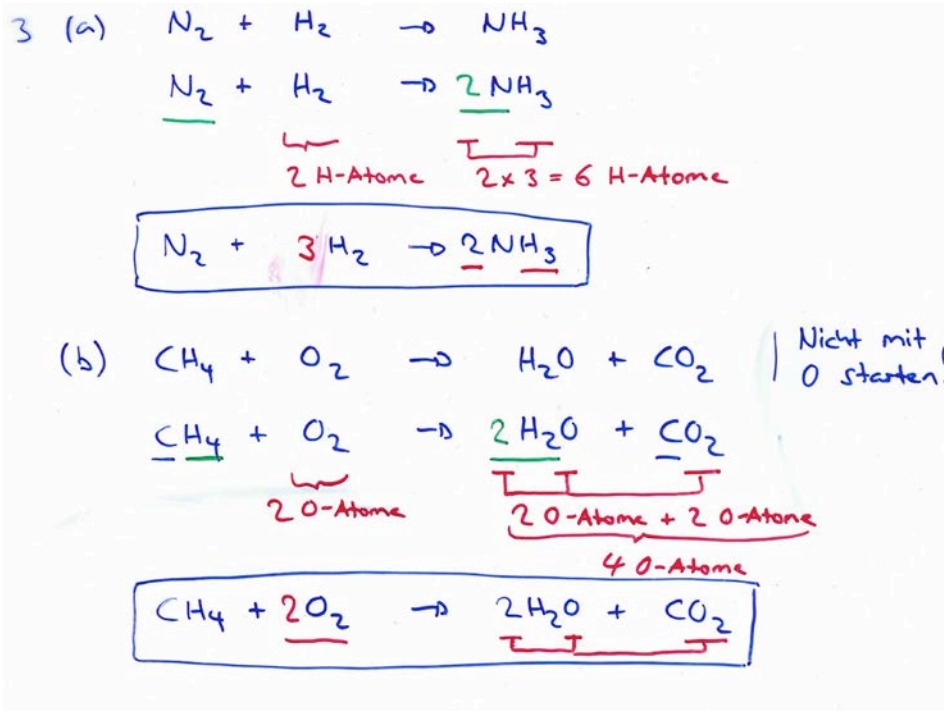 3 (a) N₂ + H₂ → NH₃
N₂ + H₂ → 2NH₃
2 H-Atome 2 x 3 = 6 H-Atome
N₂ + 3H₂ → 2NH₃
(b) CH₄ + O₂ → H₂O + CO₂ | Nicht mit
O starten
CH₄ + O₂ → 2H₂O + CO₂
2 O-Atome 2 O-Atome + 2 O-Atome
4 O-Atome
CH₄ + 2O₂ → 2H₂O + CO₂